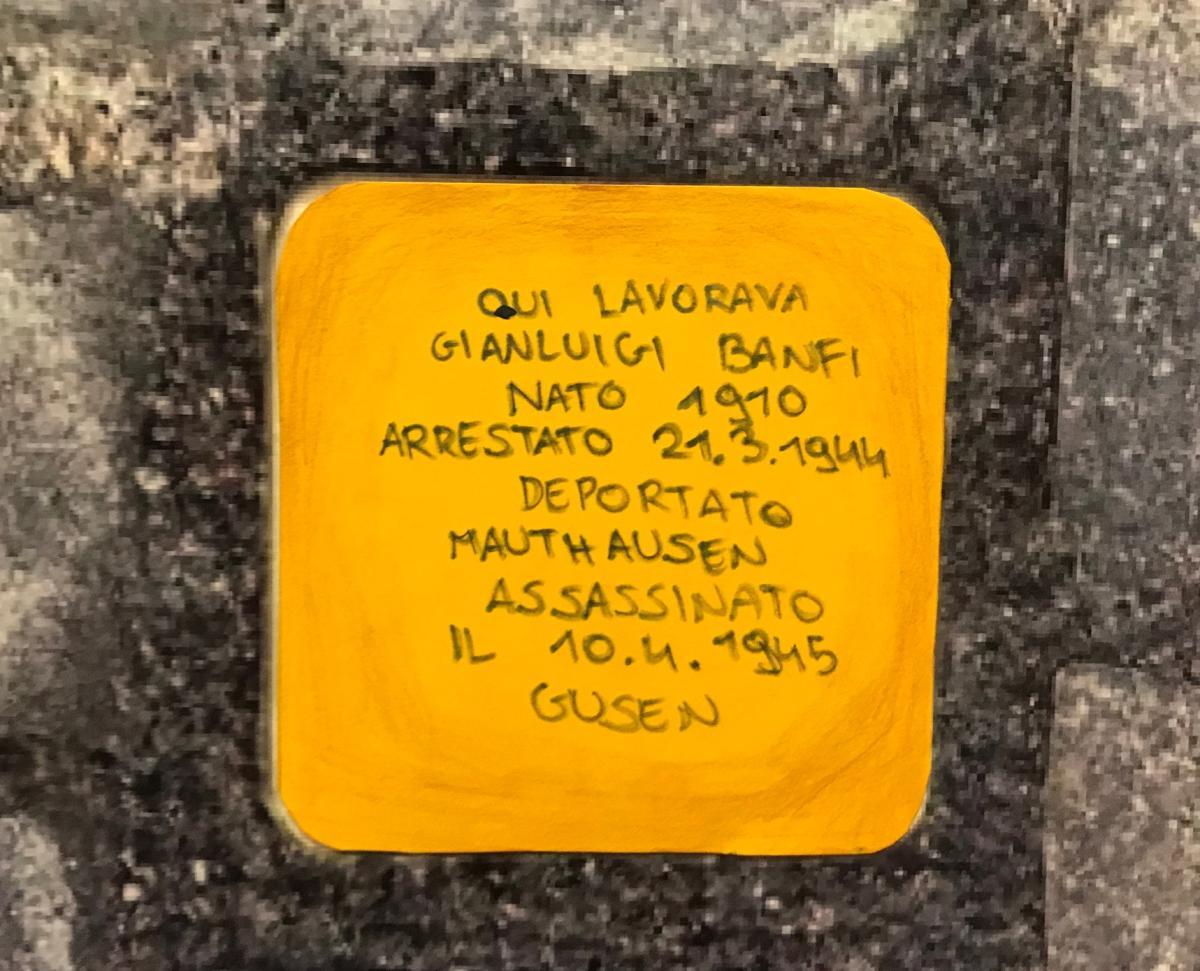 QUI LAVORAVA
GIANLUIGI BANFI
NATO 1910
ARRESTATO 21.3.1944
DEPORTATO
MAUTHAUSEN
ASSASSINATO
IL 10.4.1945
GUSEN